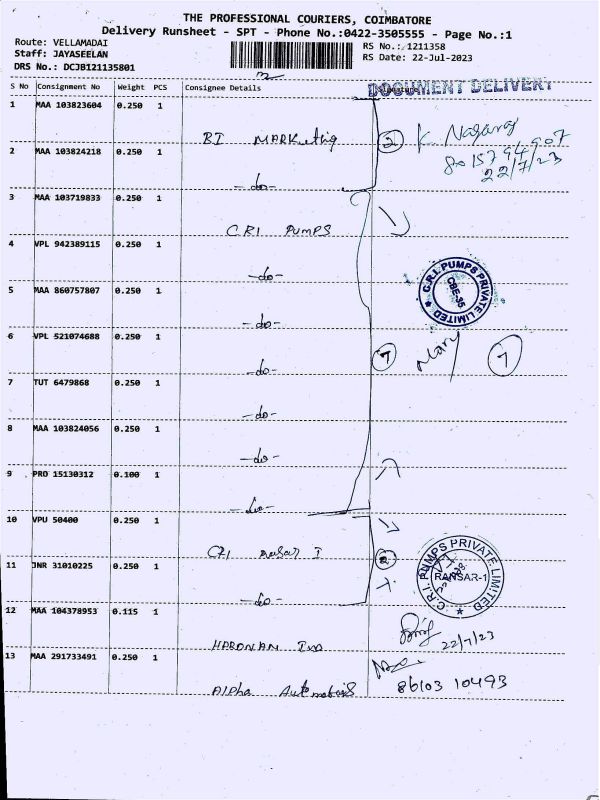 THE PROFESSIONAL COURIERS, COIMBATORE
Delivery Runsheet - SPT - Phone No.:0422-3505555 - Page No.:1
Route: VELLAMADAI
Staff: JAYASEELAN
DRS No.: DCJB121135801
RS No.: 1211358
RS Date: 22-Jul-2023
S No Consignment No Weight PCS Consignee Details Signature
DOCUMENT DELIVERY
1 MAA 103823604 0.250 1
BI MARKeting 2 K Nagaraj
80157 94907
22/7/23
2 MAA 103824218 0.250 1
-do-
3 MAA 103719833 0.250 1
CRI PUMPS
4 VPL 942389115 0.250 1
-do-
C.R.I. PUMPS PRIVATE LIMITED
CBE-35
5 MAA 860757807 0.250 1
-do-
6 VPL 521074688 0.250 1
-do- 7 Mary 7
7 TUT 6479868 0.250 1
-do-
8 MAA 103824056 0.250 1
-do-
9 PRO 15130312 0.100 1
-do-
10 VPU 50400 0.250 1
CRI Ransar I 2
C.R.I. PUMPS PRIVATE LIMITED
RANSAR-1
11 JNR 31010225 0.250 1
-do-
12 MAA 104378953 0.115 1
22/7/23
13 MAA 291733491 0.250 1
86103 10493
Alpha Automotives